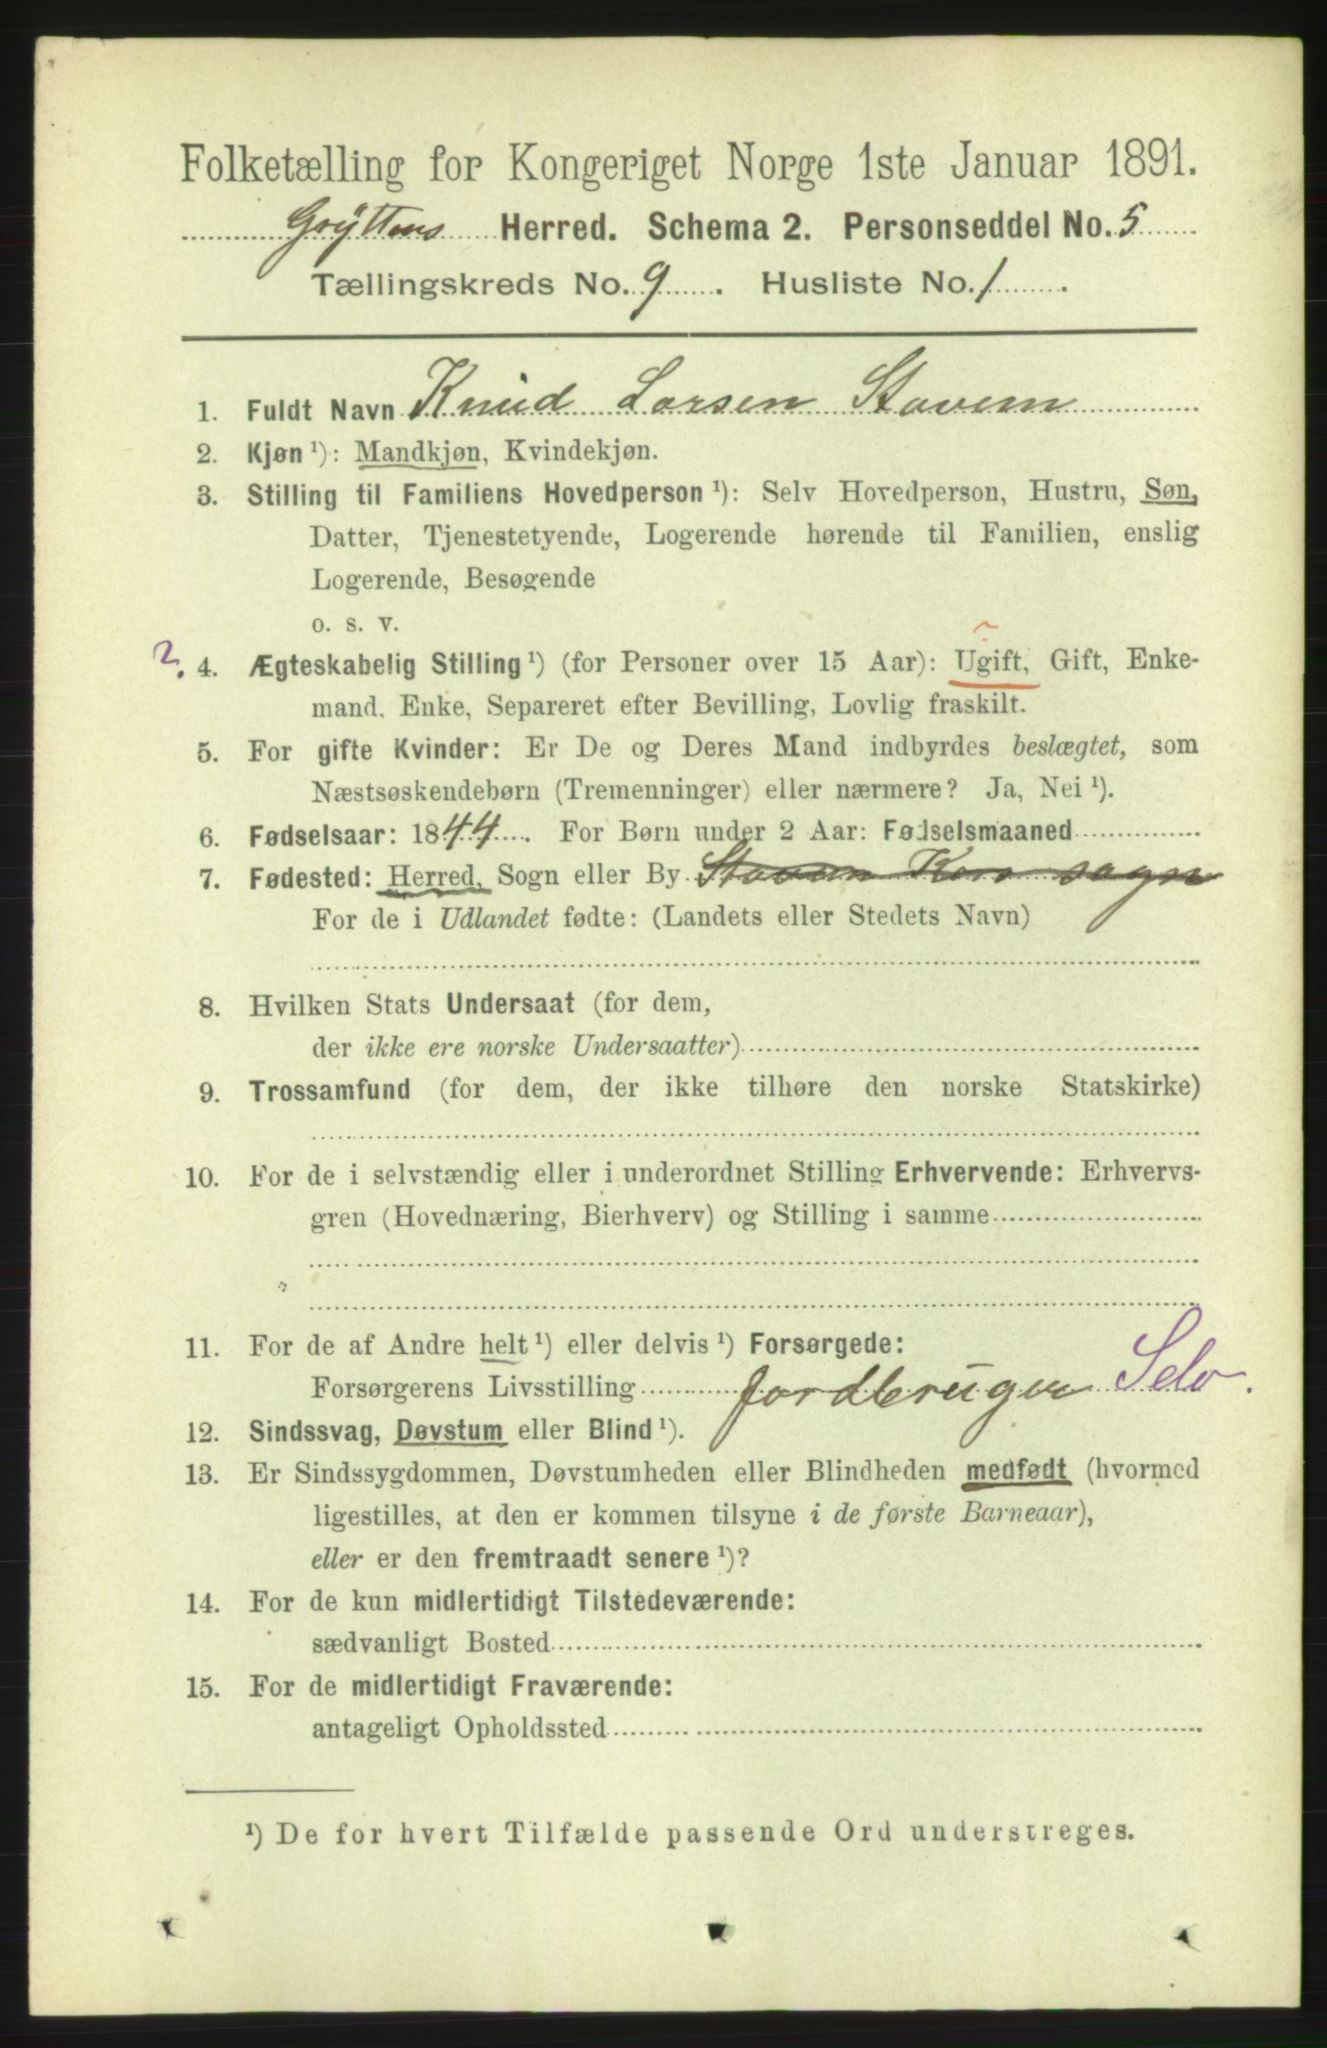 Folketælling for Kongeriget Norge 1ste Januar 1891.
Gryttens Herred. Schema 2. Personseddel No. 5
Tællingskreds No. 9. Husliste No. 1.
1. Fuldt Navn Knud Larsen Stavem
2. Kjøn ¹): Mandkjøn, Kvindekjøn.
3. Stilling til Familiens Hovedperson ¹): Selv Hovedperson, Hustru, Søn,
Datter, Tjenestetyende, Logerende hørende til Familien, enslig
Logerende, Besøgende
o. s. v.
2. 4. Ægteskabelig Stilling ¹) (for Personer over 15 Aar): Ugift, Gift, Enke-
mand, Enke, Separeret efter Bevilling, Lovlig fraskilt.
5. For gifte Kvinder: Er De og Deres Mand indbyrdes beslægtet, som
Næstsøskendebørn (Tremenninger) eller nærmere? Ja, Nei ¹).
6. Fødselsaar: 1844. For Børn under 2 Aar: Fødselsmaaned
7. Fødested: Herred, Sogn eller By Stavem Kors sogn
For de i Udlandet fødte: (Landets eller Stedets Navn)
8. Hvilken Stats Undersaat (for dem,
der ikke ere norske Undersaatter)
9. Trossamfund (for dem, der ikke tilhøre den norske Statskirke)
10. For de i selvstændig eller i underordnet Stilling Erhvervende: Erhvervs-
gren (Hovednæring, Bierhverv) og Stilling i samme
11. For de af Andre helt ¹) eller delvis ¹) Forsørgede:
Forsørgerens Livsstilling Jordbruger Selv.
12. Sindssvag, Døvstum eller Blind ¹).
13. Er Sindssygdommen, Døvstumheden eller Blindheden medfødt (hvormed
ligestilles, at den er kommen tilsyne i de første Barneaar),
eller er den fremtraadt senere ¹)?
14. For de kun midlertidigt Tilstedeværende:
sædvanligt Bosted
15. For de midlertidigt Fraværende:
antageligt Opholdssted
¹) De for hvert Tilfælde passende Ord understreges.